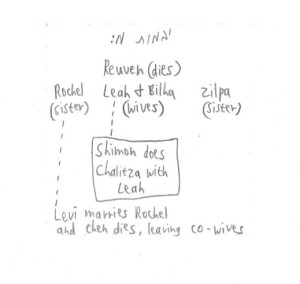 יבמות מ:
Reuven (dies)
Rochel Leah & Bilha Zilpa
(sister) (wives) (sister)
Shimon does
Chalitza with
Leah
Levi marries Rochel
and then dies, leaving co-wives